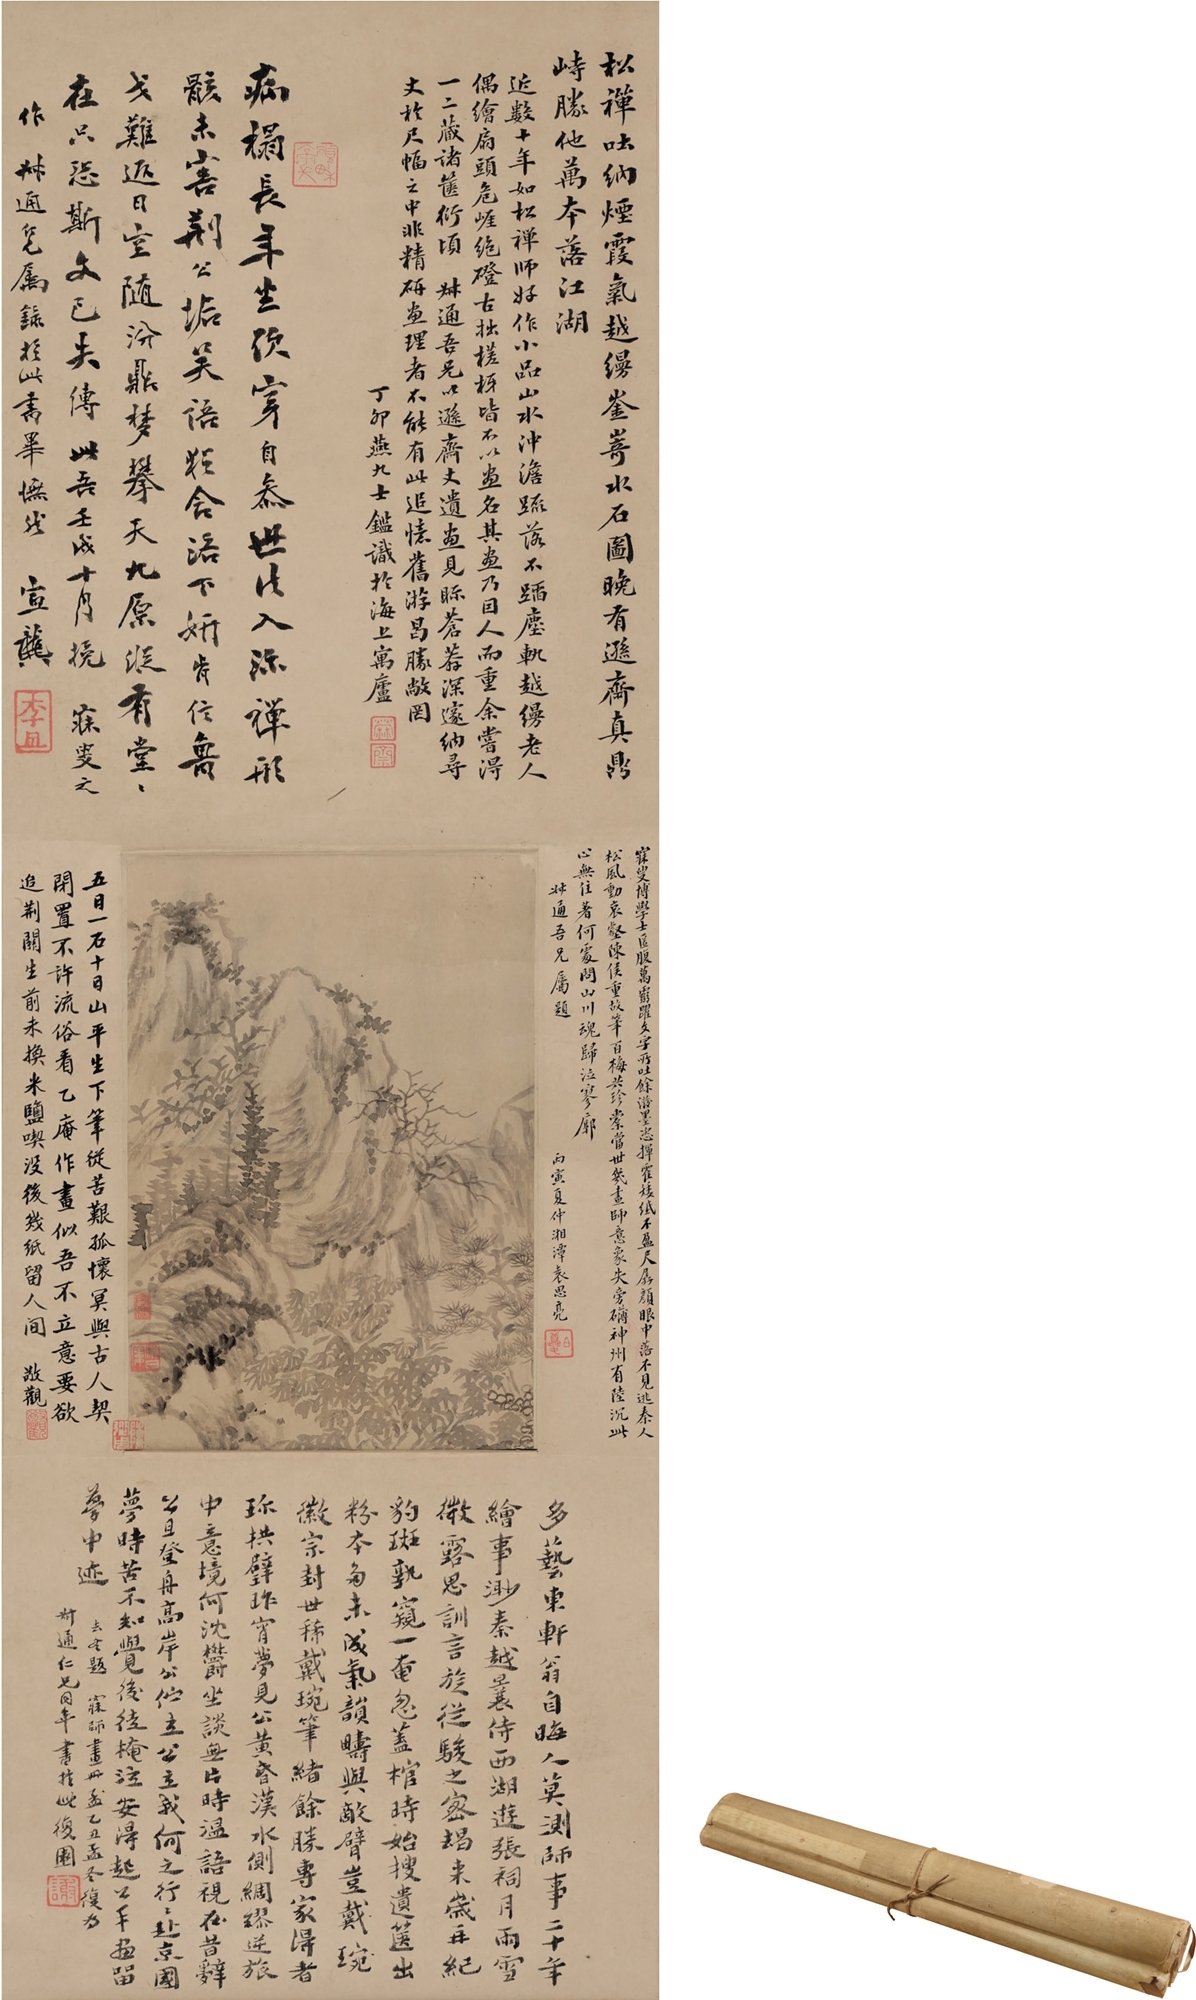 松禪吐納煙霞氣越縵崟嵜水石圖晚有遜齋真鼎
峙勝他萬本落江湖
近數十年如松禪師好作小品山水沖澹疏落不蹈塵軌越縵老人
偶繪扇頭危崕絶磴古拙槎枒皆不以畫名其畫乃因人而重余嘗得
一二藏諸篋衍頃 㭊通吾兄以遜齋丈遺畫見眎蒼莽深邃納尋
丈於尺幅之中非精研畫理者不能有此追憶舊游曷勝敞罔
丁卯燕九士鑑識於海上寓廬
病榻長年坐欲穿自參世法入深禪形
骸未害荊公垢笑語猶含洛下妍肯信魯
戈難返日空隨汾鼎夢攀天九原縱有堂堂
在只恐斯文已失傳此吾壬戌十月挽 寐叟之
作 㭊通兄屬錄於此書畢憮然 宣龔
寐叟博學士匡腹萬卷躍文字所吐餘游墨恣揮霍矮紙不盈尺孱顏眼中落不見逃秦人
松風動哀壑陳侯重故筆百梅共珍橐當世幾畫師意象失旁礴神州有陸沉此
心無住著何處問山川魂歸泣寥廓
㭊通吾兄屬題 丙寅夏仲湘潭袁思亮
五日一石十日山平生下筆從苦艱孤懷冥與古人契
閉置不許流俗看乙庵作畫似吾不立意要欲
追荊關生前未換米鹽喫沒後幾紙留人間 敬觀
多藝東軒翁自晦人莫測師事二十年
繪事渺秦越曩侍西湖遊張祠月雨雪
微露思訓言旋從駿之密朅來歲再紀
豹斑孰窺一奄忽蓋棺時始搜遺篋出
粉本多未成氣韻疇與敵臂豈戴琬
徽宗封世稀戴琬筆緒餘勝專家得者
珎拱璧昨宵夢見公黃昏漢水側綢繆逆旅
中意境何沈鬱坐談無片時溫語視在昔辭
公且登舟高岸公佇立公立我何之行行赴京國
夢時苦不知覺後徒掩泣安得起公手畫留
夢中迹 去冬題 寐師畫冊至乙丑孟冬復為
㭊通仁兄同年書於此復園